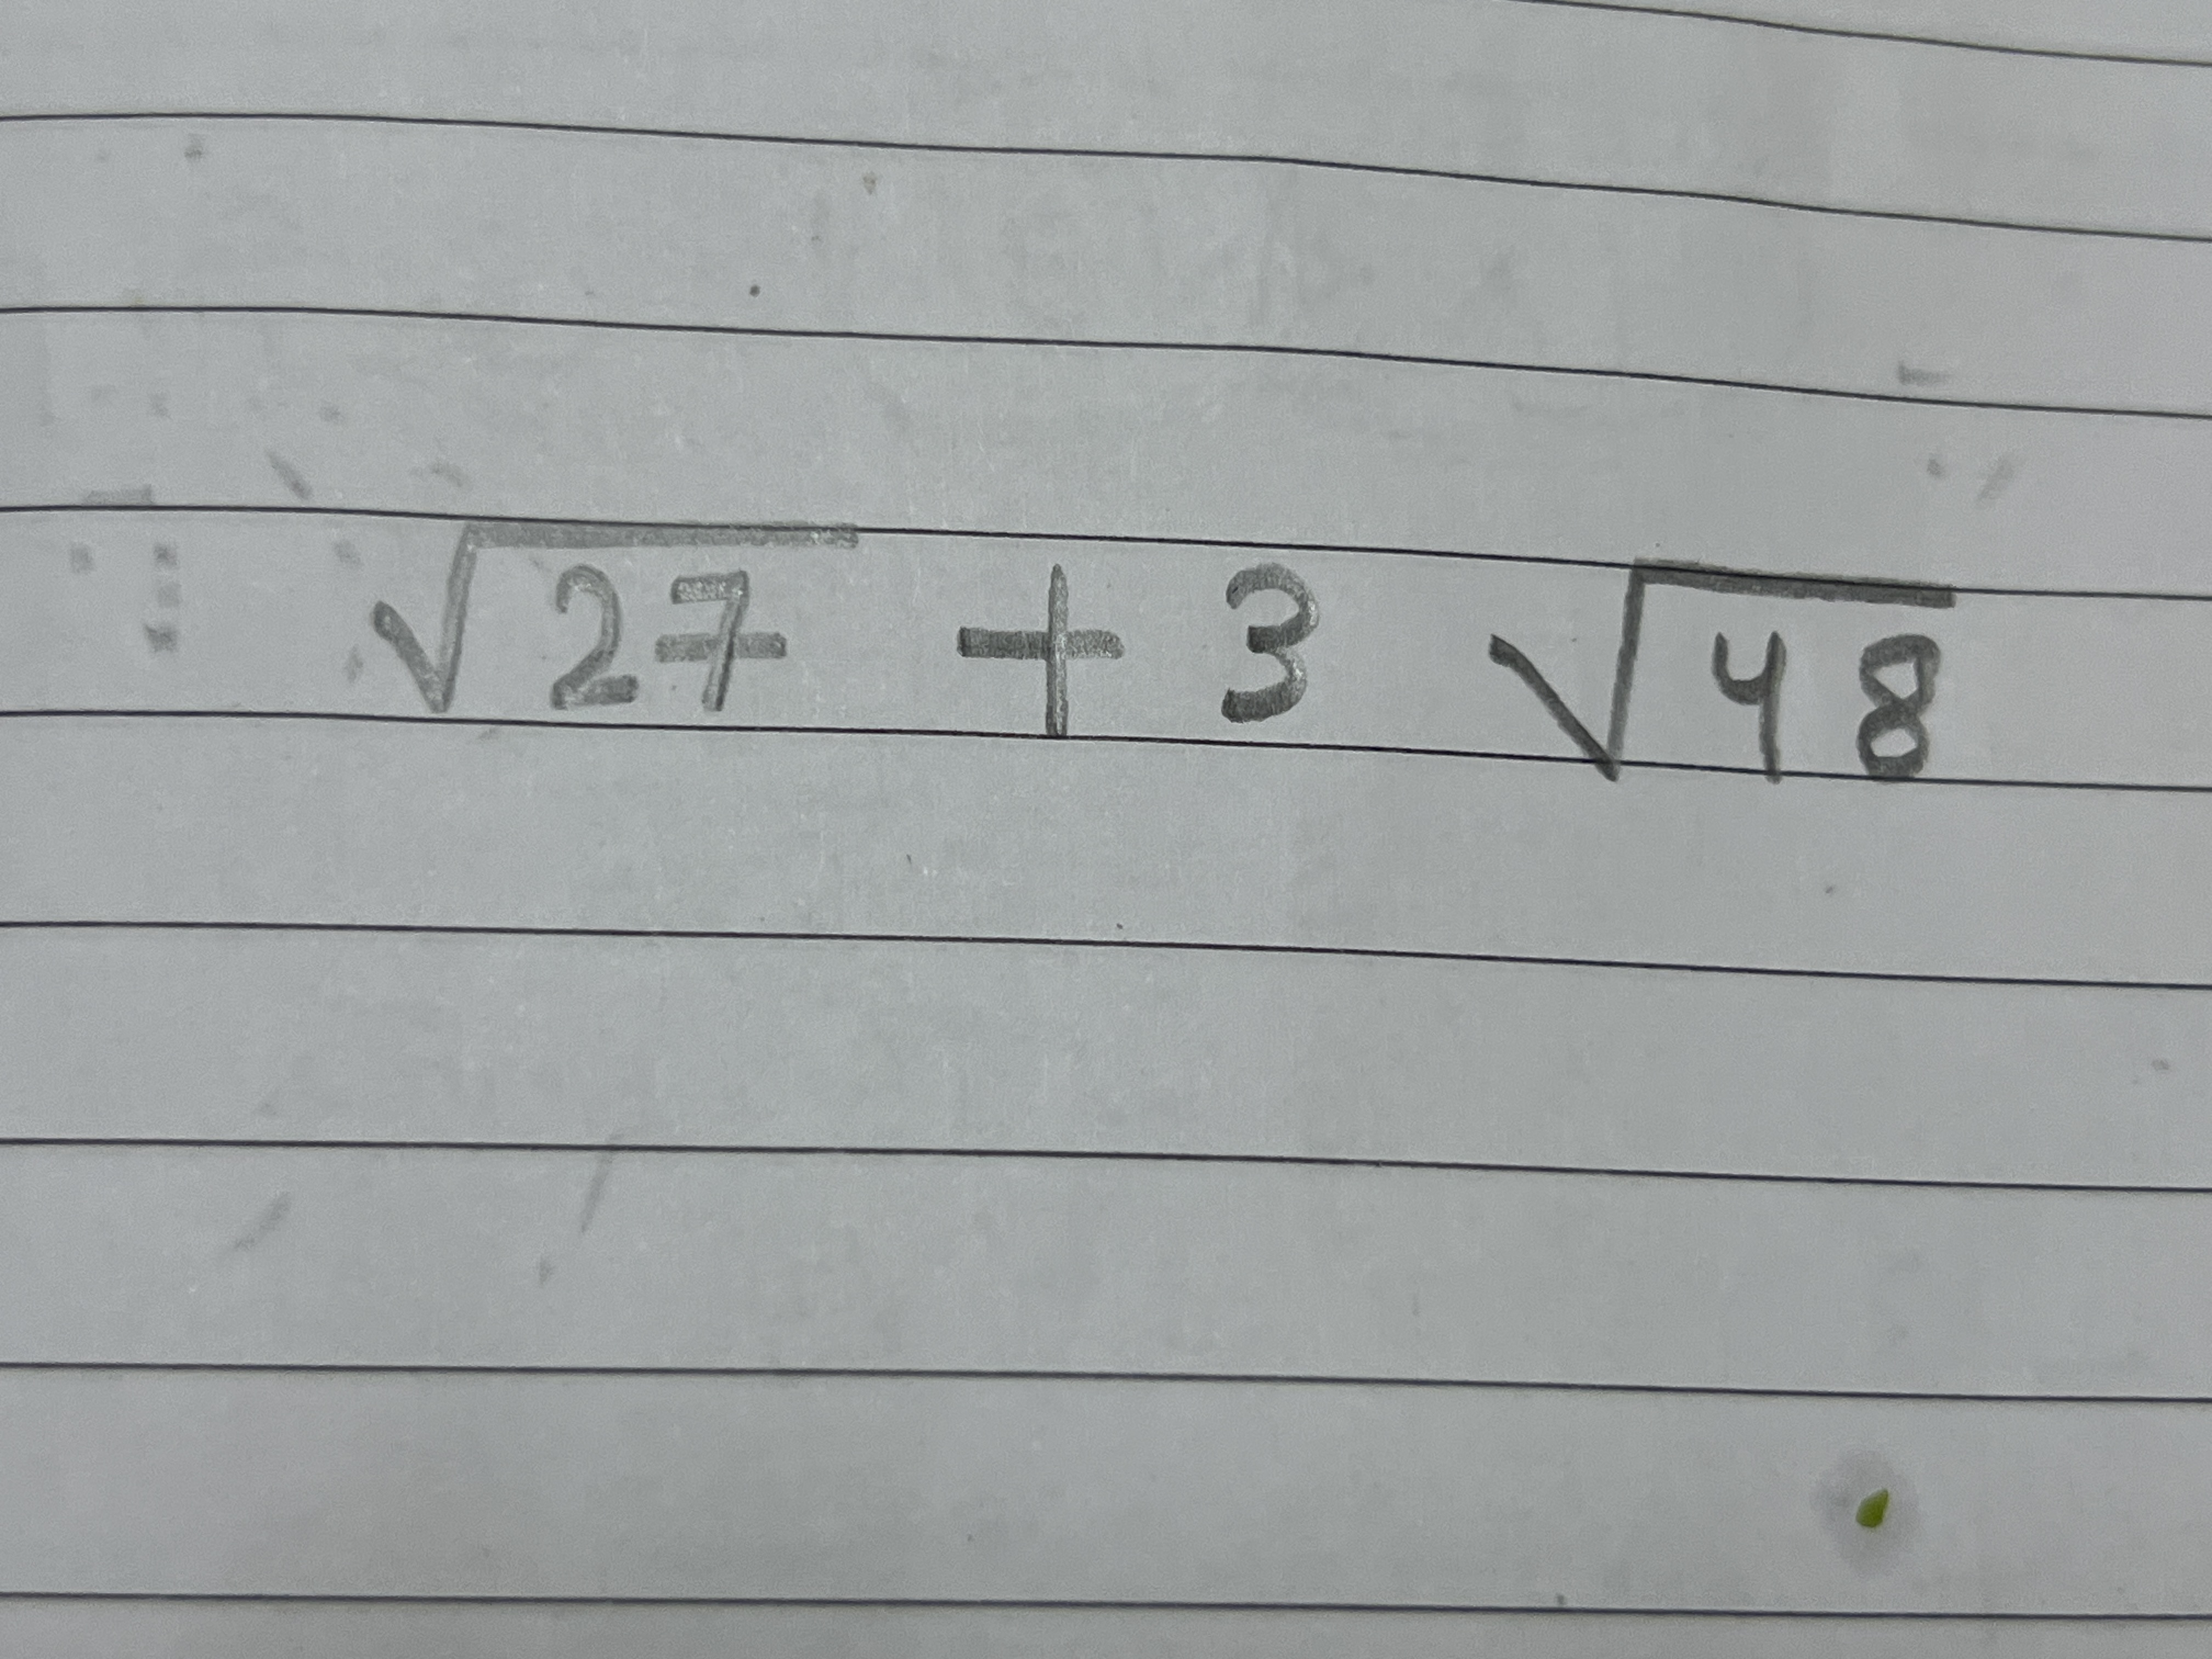 √27 + 3 √48